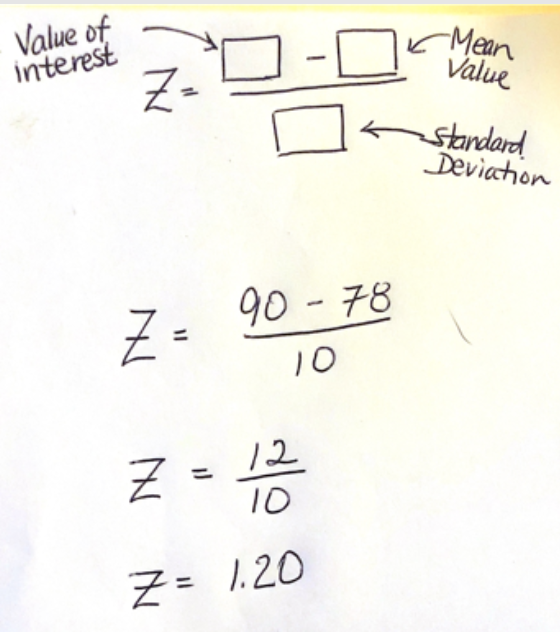 Value of
interest
Z= □ - □
□
Mean
Value
Standard
Deviation
Z = 90 - 78
10
Z = 12
10
Z = 1.20